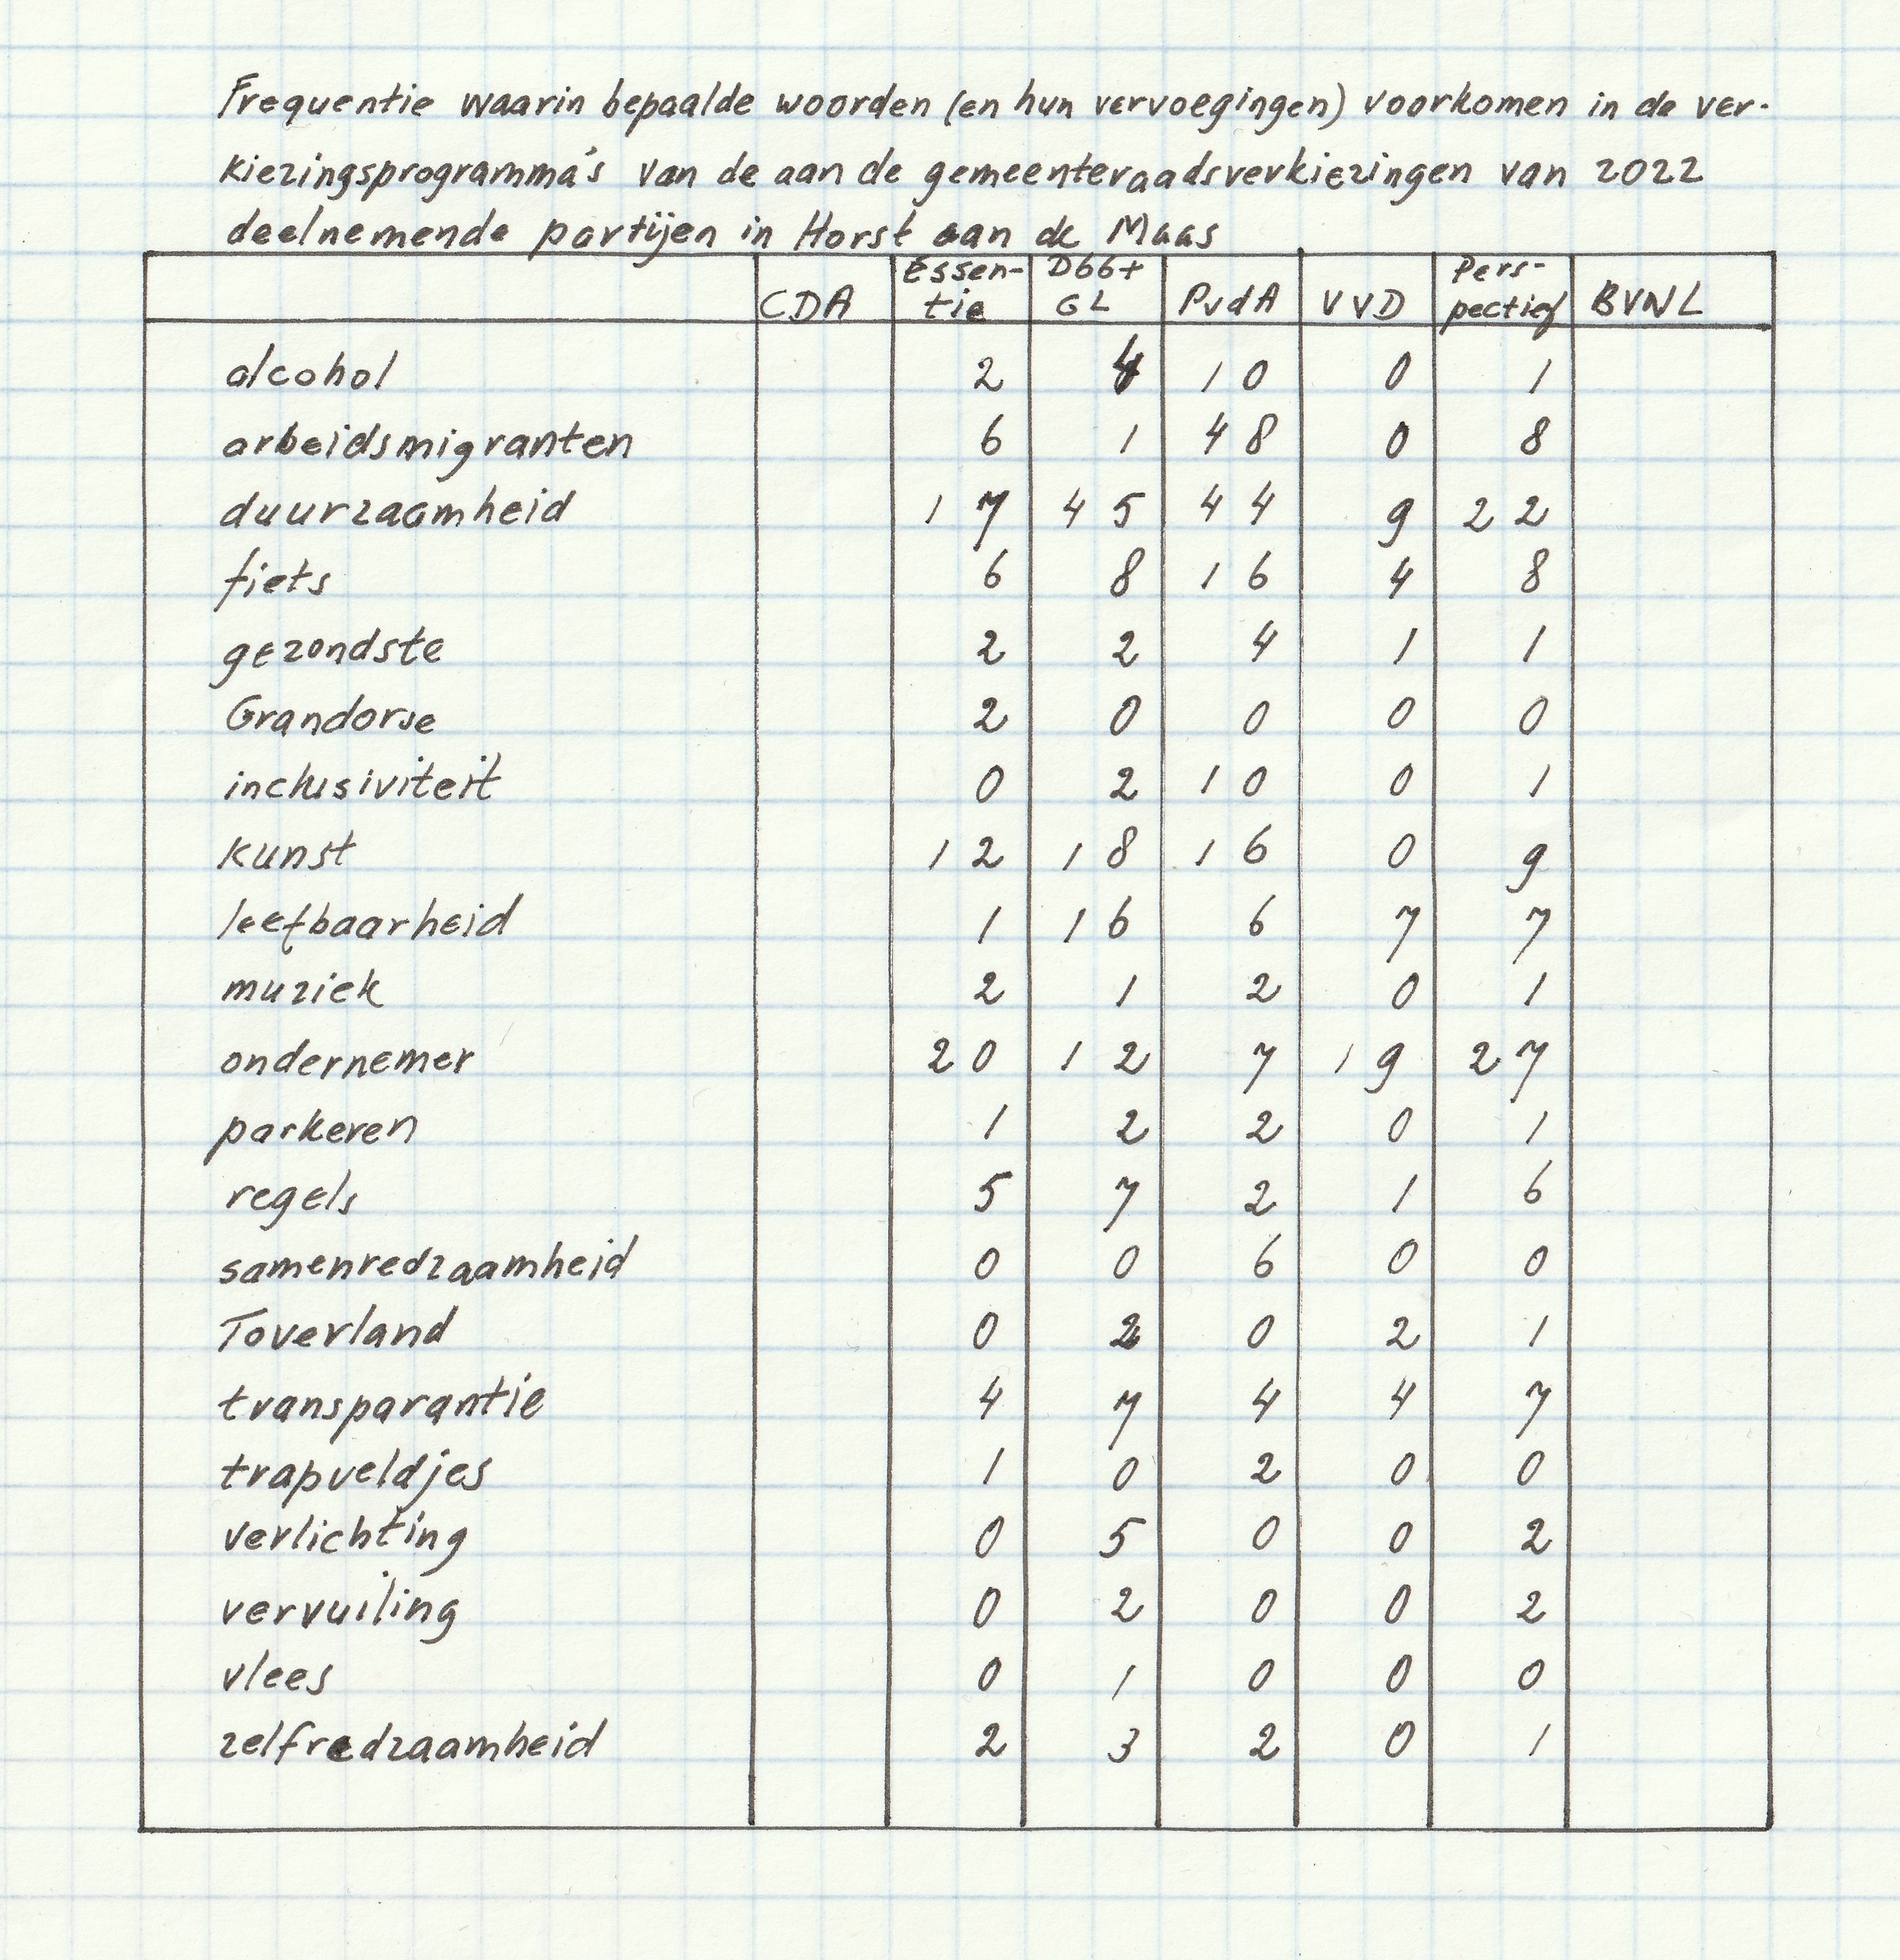 Frequentie waarin bepaalde woorden (en hun vervoegingen) voorkomen in de ver-
kiezingsprogramma's van de aan de gemeenteraadsverkiezingen van 2022
deelnemende partijen in Horst aan de Maas
CDA Essen-tie D66+ GL PvdA VVD Pers-pectief BVNL
alcohol 2 4 10 0 1
arbeidsmigranten 6 1 48 0 8
duurzaamheid 17 45 44 9 22
fiets 6 8 16 4 8
gezondste 2 2 4 1 1
Grandorse 2 0 0 0 0
inclusiviteit 0 2 10 0 1
kunst 12 18 16 0 9
leefbaarheid 1 16 6 7 7
muziek 2 1 2 0 1
ondernemer 20 12 7 19 27
parkeren 1 2 2 0 1
regels 5 7 2 1 6
samenredzaamheid 0 0 6 0 0
Toverland 0 2 0 2 1
transparantie 4 7 4 4 7
trapveldjes 1 0 2 0 0
verlichting 0 5 0 0 2
vervuiling 0 2 0 0 2
vlees 0 1 0 0 0
zelfredzaamheid 2 3 2 0 1